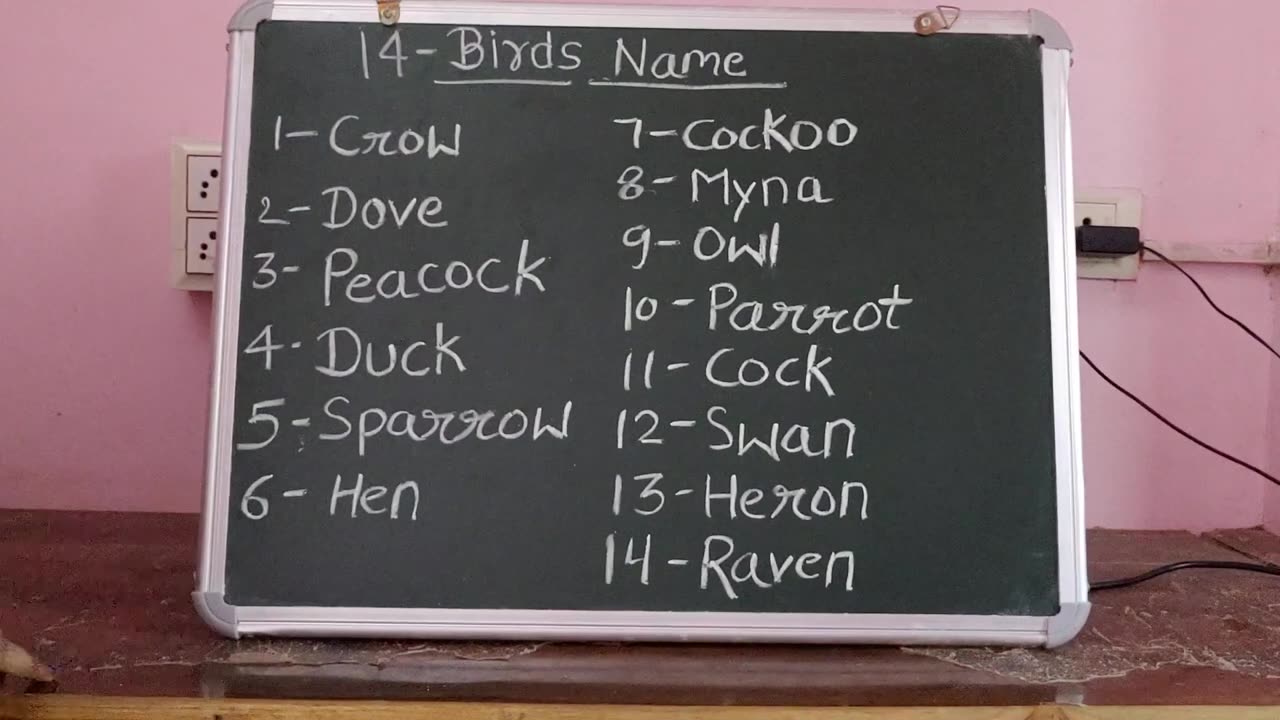 14-Birds Name
1-Crow
2-Dove
3-Peacock
4-Duck
5-Sparrow
6-Hen
7-Cockoo
8-Myna
9-Owl
10-Parrot
11-Cock
12-Swan
13-Heron
14-Raven